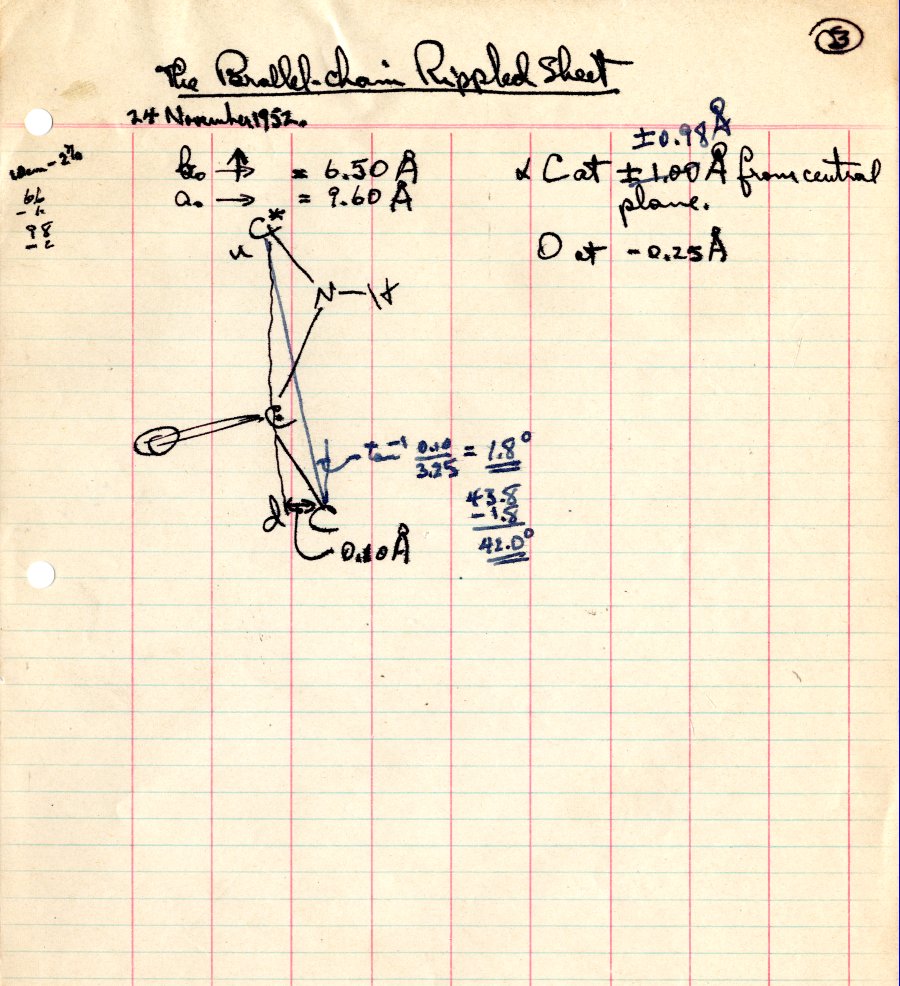 53
The Parallel-chain Rippled Sheet
24 November 1952.
b₀ ↑→ = 6.50 Å
a₀ → = 9.60 Å
±0.98 Å
α C at ±1.00 Å from central
plane.
O at -0.25 Å
- 2%
66
98
C*
N—H
C
tan⁻¹ 0.10/3.25 = 1.8°
43.8
-1.8
42.0°
d
C
0.10 Å